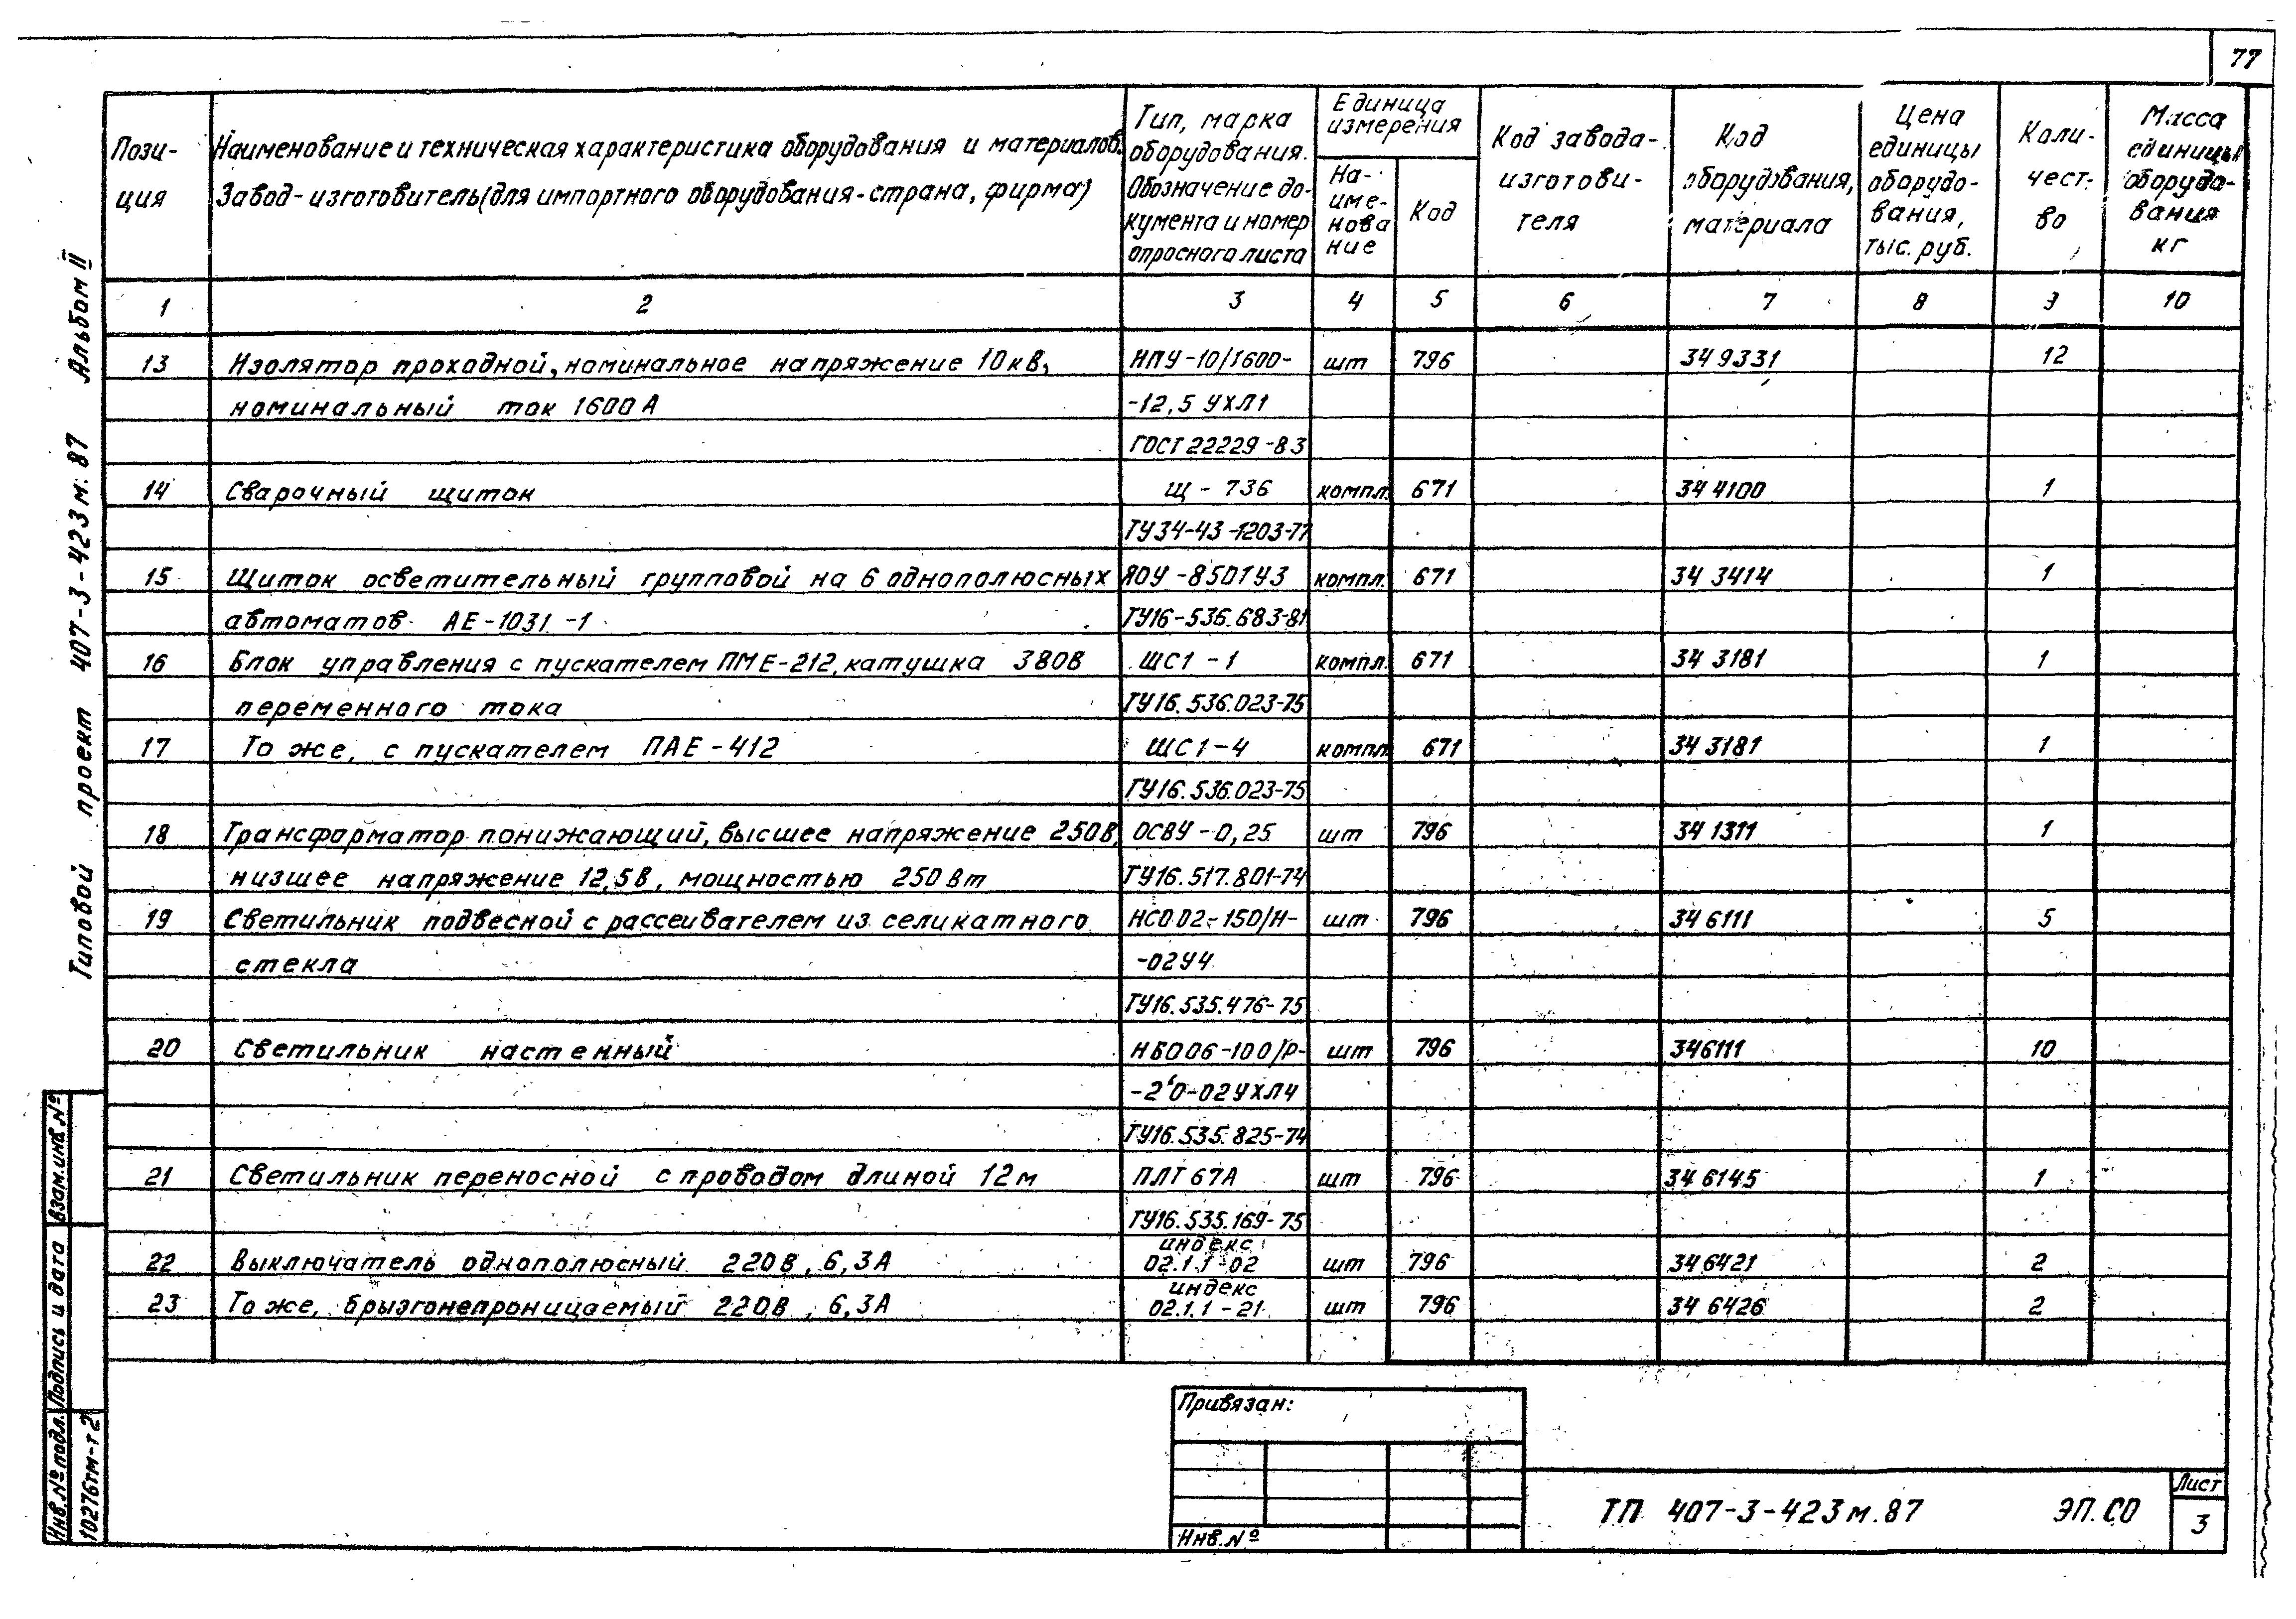 77
Пози-
ция
Наименование и техническая характеристика оборудования и материалов.
Завод-изготовитель (для импортного оборудования-страна, фирма)
Тип, марка
оборудования.
Обозначение до-
кумента и номер
опросного листа
Единица
измерения
На-
име-
нова
ние
Код
Код завода-
изготови-
теля
Код
оборудования,
материала
Цена
единицы
оборудо-
вания,
тыс. руб.
Коли-
чест-
во
Масса
единицы
оборудо-
вания
кг
1 2 3 4 5 6 7 8 9 10
13 Изолятор проходной, номинальное напряжение 10кв, ИПУ-10/1600- шт 796 34 9331 12
номинальный ток 1600А -12,5 УХЛ1
ГОСТ 22229-83
14 Сварочный щиток Щ-736 компл. 671 34 4100 1
ТУ34-43-1203-77
15 Щиток осветительный групповой на 6 однополюсных ЯОУ-8501У3 компл. 671 34 3414 1
автоматов АЕ-1031-1 ТУ16-536.683-81
16 Блок управления с пускателем ПМЕ-212, катушка 380В ШС1-1 компл. 671 34 3181 1
переменного тока ТУ16.536.023-75
17 То же, с пускателем ПАЕ-412 ШС1-4 компл 671 34 3181 1
ТУ16.536.023-75
18 Трансформатор понижающий, высшее напряжение 250В, ОСВУ-0,25 шт 796 34 1311 1
низшее напряжение 12,5В, мощностью 250Вт ТУ16.517.801-74
19 Светильник подвесной с рассеивателем из селикатного НСО02-150/Н- шт 796 34 6111 5
стекла -02У4
ТУ16.535.476-75
20 Светильник настенный НБО06-100/Р- шт 796 346111 10
-2'0-02УХЛ4
ТУ16.535.825-74
21 Светильник переносной с проводом длиной 12м ПЛТ 67А шт 796 34 6145 1
ТУ16.535.169-75
индекс
22 Выключатель однополюсный 220В, 6,3А 02.1.1-02 шт 796 34 6421 2
индекс
23 То же, брызгонепроницаемый 220В, 6,3А 02.1.1-21 шт 796 34 6426 2
Типовой проект 407-3-423м.87 Альбом II
Взам.инв.№
Подпись и дата
Инв.№подл.
10276тм-т2
Привязан:
Инв.№
ТП 407-3-423м.87 ЭП.СО
Лист
3